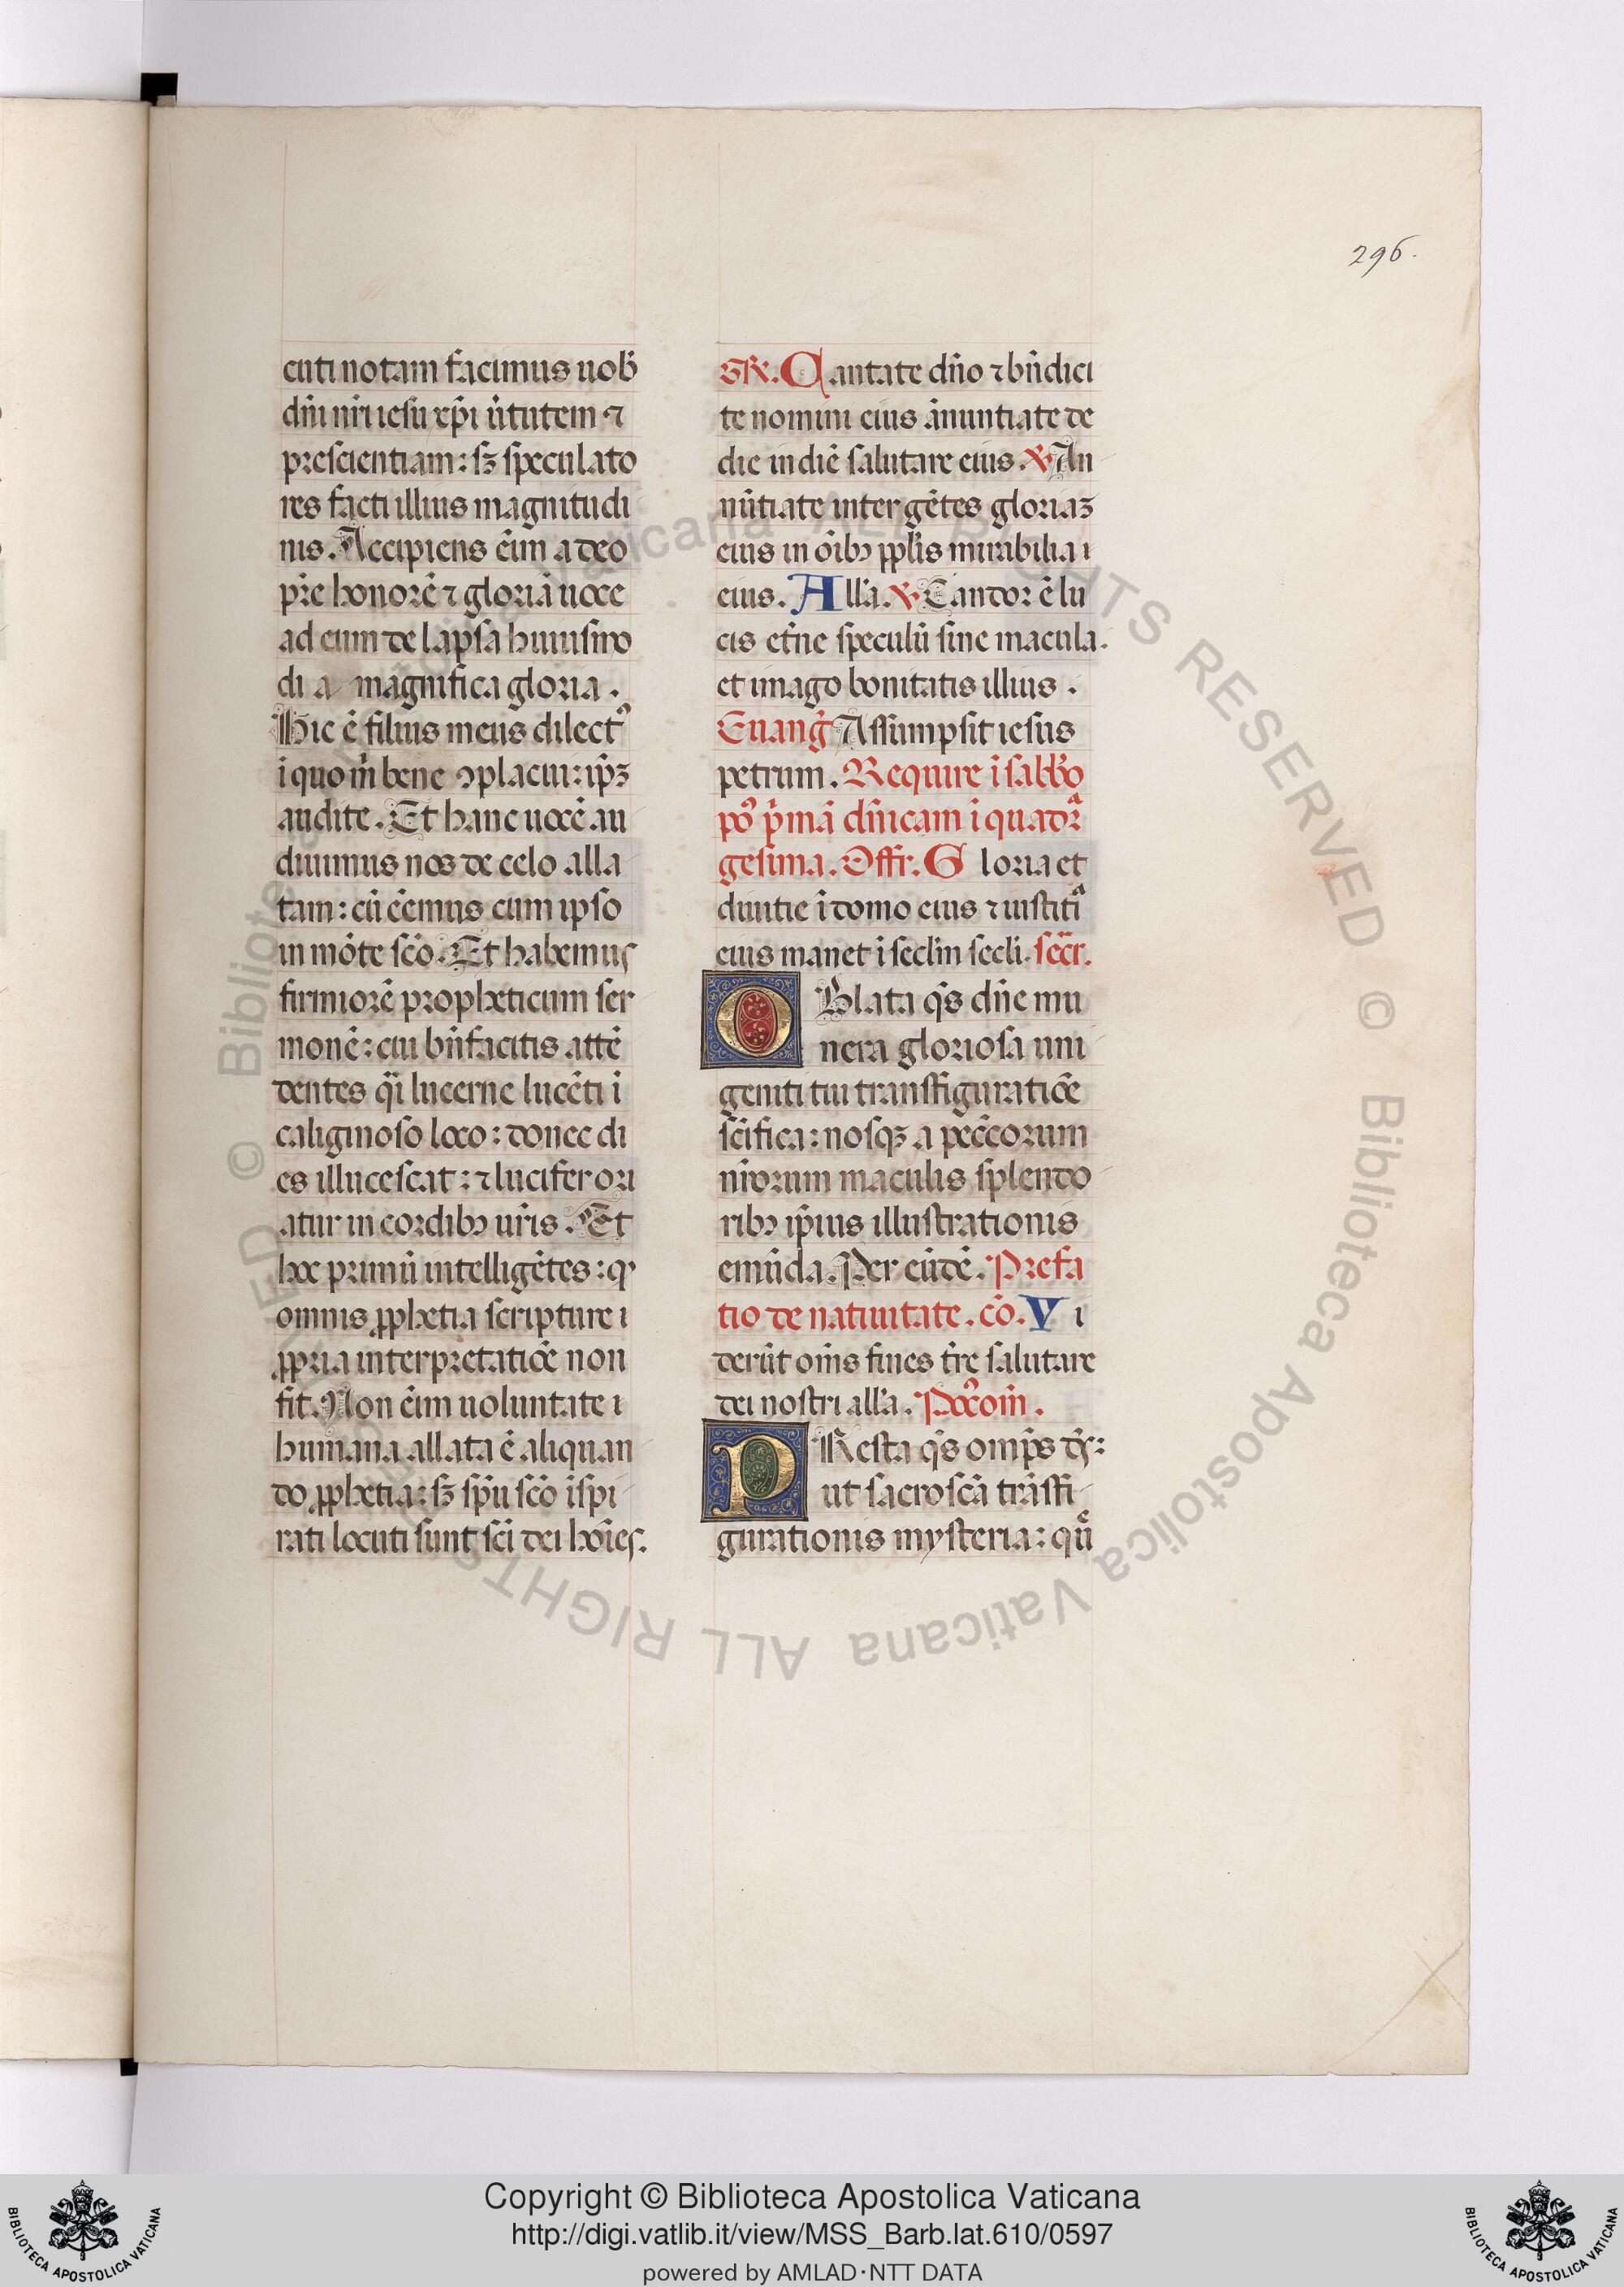 296.
cuti notam facimus uob̄
dn̄i nr̄i iesu xp̄i ūtutem ⁊
prescientiam: sꝫ speculato
res facti illius magnitudi
nis. Accipiens ēim a deo
pr̄e honorē ⁊ gloriā uoce
ad eum delapsa huiusmo
di a magnifica gloria.
Hic ē filius meus dilectꝰ
ī quo m̄ bene ꝯplacui: ip̄ꝫ
audite. Et hanc uocē au
diuimus nos de celo alla
tam: cū cēmus cum ipso
in mōte scō. Et habemus
firmiorē propheticum ser
monē: cui bn̄facitis attē
dentes q̄i lucerne lucēti ī
caliginoso loco: donec di
es illucescat: ⁊ lucifer ori
atur in cordibꝫ ur̄is. Et
hoc primū intelligētes: ꝙ
omnis ꝓphetia scripture
ꝓpria interpretatiōe non
fit. Non ēim uoluntate
humana allata ē aliquan
do ꝓphetia: sꝫ sp̄u scō īspi
rati locuti sunt scī dei hoīes.
GR̄. Cantate dn̄o ⁊ bn̄dici
te nomini eius ānuntiate de
die in diē salutare eius. ℣ An
nūtiate inter gētes gloriaꝫ
eius in oībꝫ ppl̄is mirabilia
eius. All̄a. ℣ Candor ē lu
cis et̄ne speculū sine macula.
et imago bonitatis illius.
Euanḡ Assumpsit iesus
petrum. Require ī sabb̄o
pꝰ p̄mā dn̄icam ī quadr̄a
gesima. Offr. Gloria et
diuitie ī domo eius ⁊ iustiti^a
eius manet ī secl̄m secl̄i. secr̄.
OBlata qs̄ dn̄e mu
nera gloriosa uni
geniti tui transfiguratiōe
scīfica: nosqꝫ a peccorum
nr̄orum maculis splendo
ribꝫ ip̄ius illustrationis
emūda. Per eūdē. Prefa
tio de natiuitate. cō. Vi
derūt om̄s fines tr̄e salutare
dei nostri all̄a. Poꝰcom̄.
PResta qs̄ omp̄s ds̄:
ut sacroscā trāsfi
gurationis mysteria: qū
Copyright © Biblioteca Apostolica Vaticana
http://digi.vatlib.it/view/MSS_Barb.lat.610/0597
powered by AMLAD·NTT DATA
BIBLIOTECA APOSTOLICA VATICANA
BIBLIOTECA APOSTOLICA VATICANA
© Biblioteca Apostolica Vaticana ALL RIGHTS RESERVED © Biblioteca Apostolica Vaticana ALL RIGHTS RESERVED